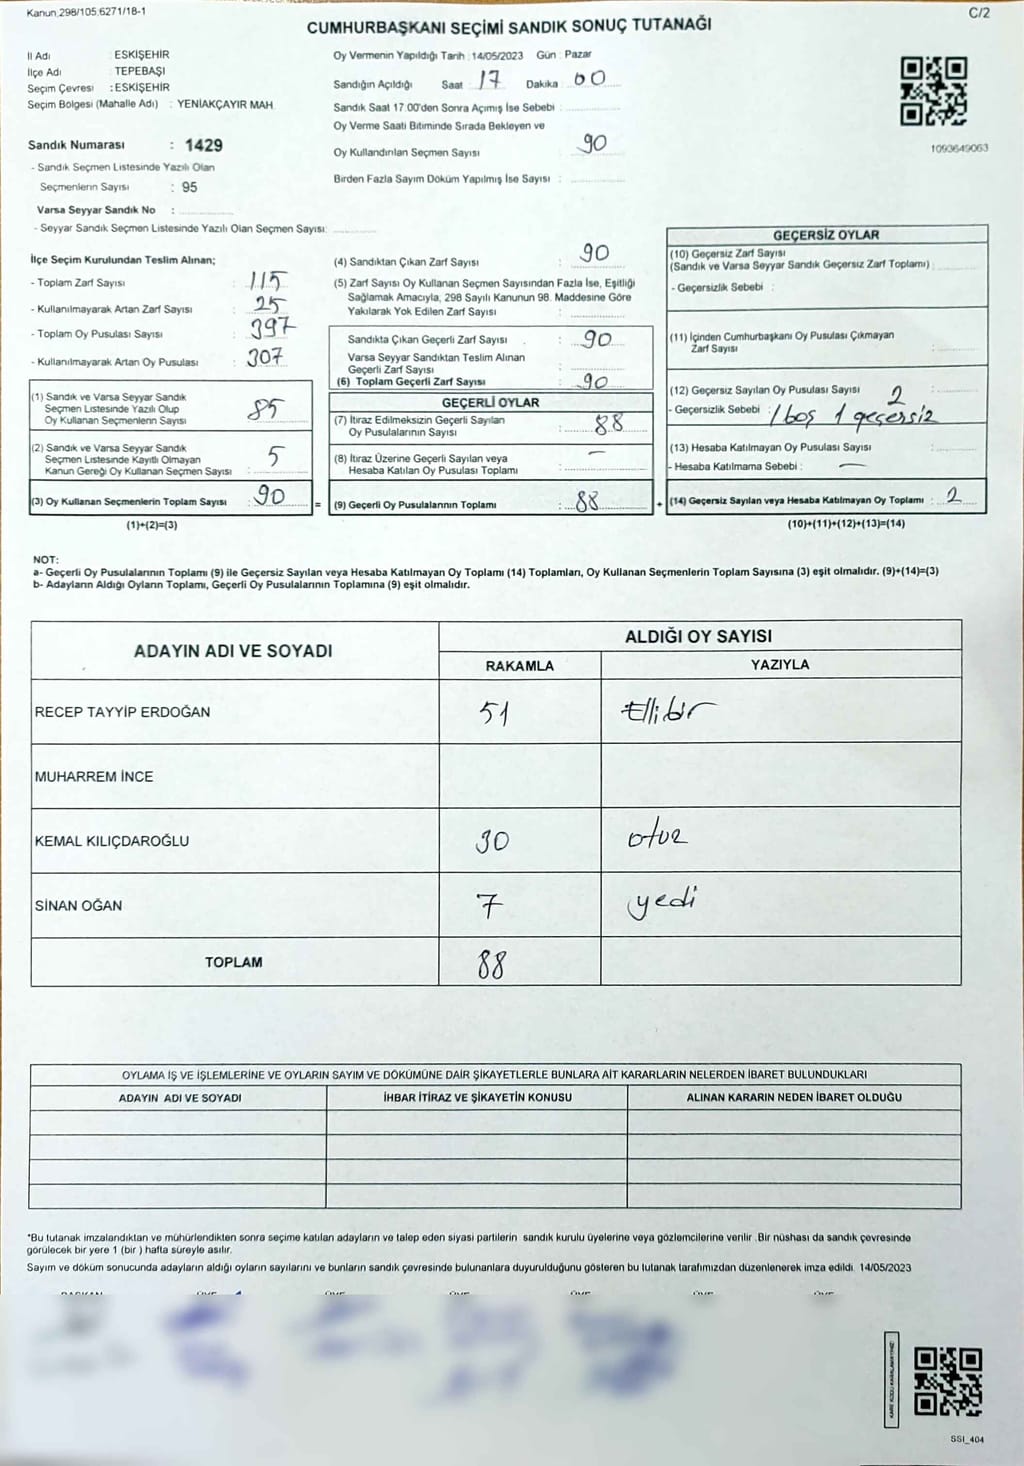 Kanun 298/105 6271/18-1
C/2
CUMHURBAŞKANI SEÇİMİ SANDIK SONUÇ TUTANAĞI
İl Adı : ESKİŞEHİR
İlçe Adı : TEPEBAŞI
Seçim Çevresi : ESKİŞEHİR
Seçim Bölgesi (Mahalle Adı) : YENİAKÇAYIR MAH.
Sandık Numarası : 1429
- Sandık Seçmen Listesinde Yazılı Olan
Seçmenlerin Sayısı : 95
Varsa Seyyar Sandık No :
- Seyyar Sandık Seçmen Listesinde Yazılı Olan Seçmen Sayısı:
Oy Vermenin Yapıldığı Tarih : 14/05/2023 Gün : Pazar
Sandığın Açıldığı Saat : 17 Dakika : 00
Sandık Saat 17.00'den Sonra Açılmış İse Sebebi :
Oy Verme Saati Bitiminde Sırada Bekleyen ve
Oy Kullandırılan Seçmen Sayısı : 90
Birden Fazla Sayım Döküm Yapılmış İse Sayısı :
1093649063
İlçe Seçim Kurulundan Teslim Alınan;
- Toplam Zarf Sayısı : 115
- Kullanılmayarak Artan Zarf Sayısı : 25
- Toplam Oy Pusulası Sayısı : 397
- Kullanılmayarak Artan Oy Pusulası : 307
(1) Sandık ve Varsa Seyyar Sandık
Seçmen Listesinde Yazılı Olup
Oy Kullanan Seçmenlerin Sayısı : 85
(2) Sandık ve Varsa Seyyar Sandık
Seçmen Listesinde Kayıtlı Olmayan
Kanun Gereği Oy Kullanan Seçmen Sayısı : 5
(3) Oy Kullanan Seçmenlerin Toplam Sayısı : 90
=
(1)+(2)=(3)
(4) Sandıktan Çıkan Zarf Sayısı : 90
(5) Zarf Sayısı Oy Kullanan Seçmen Sayısından Fazla İse, Eşitliği
Sağlamak Amacıyla, 298 Sayılı Kanunun 98. Maddesine Göre
Yakılarak Yok Edilen Zarf Sayısı :
Sandıkta Çıkan Geçerli Zarf Sayısı : 90
Varsa Seyyar Sandıktan Teslim Alınan
Geçerli Zarf Sayısı :
(6) Toplam Geçerli Zarf Sayısı : 90
GEÇERLİ OYLAR
(7) İtiraz Edilmeksizin Geçerli Sayılan
Oy Pusulalarının Sayısı : 88
(8) İtiraz Üzerine Geçerli Sayılan veya
Hesaba Katılan Oy Pusulası Toplamı : —
(9) Geçerli Oy Pusulalarının Toplamı : 88
+
GEÇERSİZ OYLAR
(10) Geçersiz Zarf Sayısı
(Sandık ve Varsa Seyyar Sandık Geçersiz Zarf Toplamı) :
- Geçersizlik Sebebi :
(11) İçinden Cumhurbaşkanı Oy Pusulası Çıkmayan
Zarf Sayısı :
(12) Geçersiz Sayılan Oy Pusulası Sayısı : 2
- Geçersizlik Sebebi : 1 boş 1 geçersiz
(13) Hesaba Katılmayan Oy Pusulası Sayısı :
- Hesaba Katılmama Sebebi : —
(14) Geçersiz Sayılan veya Hesaba Katılmayan Oy Toplamı : 2
(10)+(11)+(12)+(13)=(14)
NOT:
a- Geçerli Oy Pusulalarının Toplamı (9) ile Geçersiz Sayılan veya Hesaba Katılmayan Oy Toplamı (14) Toplamları, Oy Kullanan Seçmenlerin Toplam Sayısına (3) eşit olmalıdır. (9)+(14)=(3)
b- Adayların Aldığı Oyların Toplamı, Geçerli Oy Pusulalarının Toplamına (9) eşit olmalıdır.
ADAYIN ADI VE SOYADI
ALDIĞI OY SAYISI
RAKAMLA YAZIYLA
RECEP TAYYİP ERDOĞAN 51 Ellibir
MUHARREM İNCE
KEMAL KILIÇDAROĞLU 30 otuz
SİNAN OĞAN 7 yedi
TOPLAM 88
OYLAMA İŞ VE İŞLEMLERİNE VE OYLARIN SAYIM VE DÖKÜMÜNE DAİR ŞİKAYETLERLE BUNLARA AİT KARARLARIN NELERDEN İBARET BULUNDUKLARI
ADAYIN ADI VE SOYADI İHBAR İTİRAZ VE ŞİKAYETİN KONUSU ALINAN KARARIN NEDEN İBARET OLDUĞU
*Bu tutanak imzalandıktan ve mühürlendikten sonra seçime katılan adayların ve talep eden siyasi partilerin sandık kurulu üyelerine veya gözlemcilerine verilir .Bir nüshası da sandık çevresinde
görülecek bir yere 1 (bir ) hafta süreyle asılır.
Sayım ve döküm sonucunda adayların aldığı oyların sayılarını ve bunların sandık çevresinde bulunanlara duyurulduğunu gösteren bu tutanak tarafımızdan düzenlenerek imza edildi. 14/05/2023
KARE KODU KARALAMAYINIZ!
SSI_404